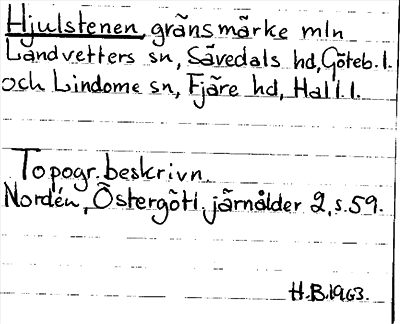 Hjulstenen, gränsmärke mln
Landvetters sn, Sävedals hd, Göteb. l.
och Lindome sn, Fjäre hd, Hall. l.
Topogr. beskrivn.
Nordén, Östergötl. järnålder 2, s. 59.
H.B. 1963.